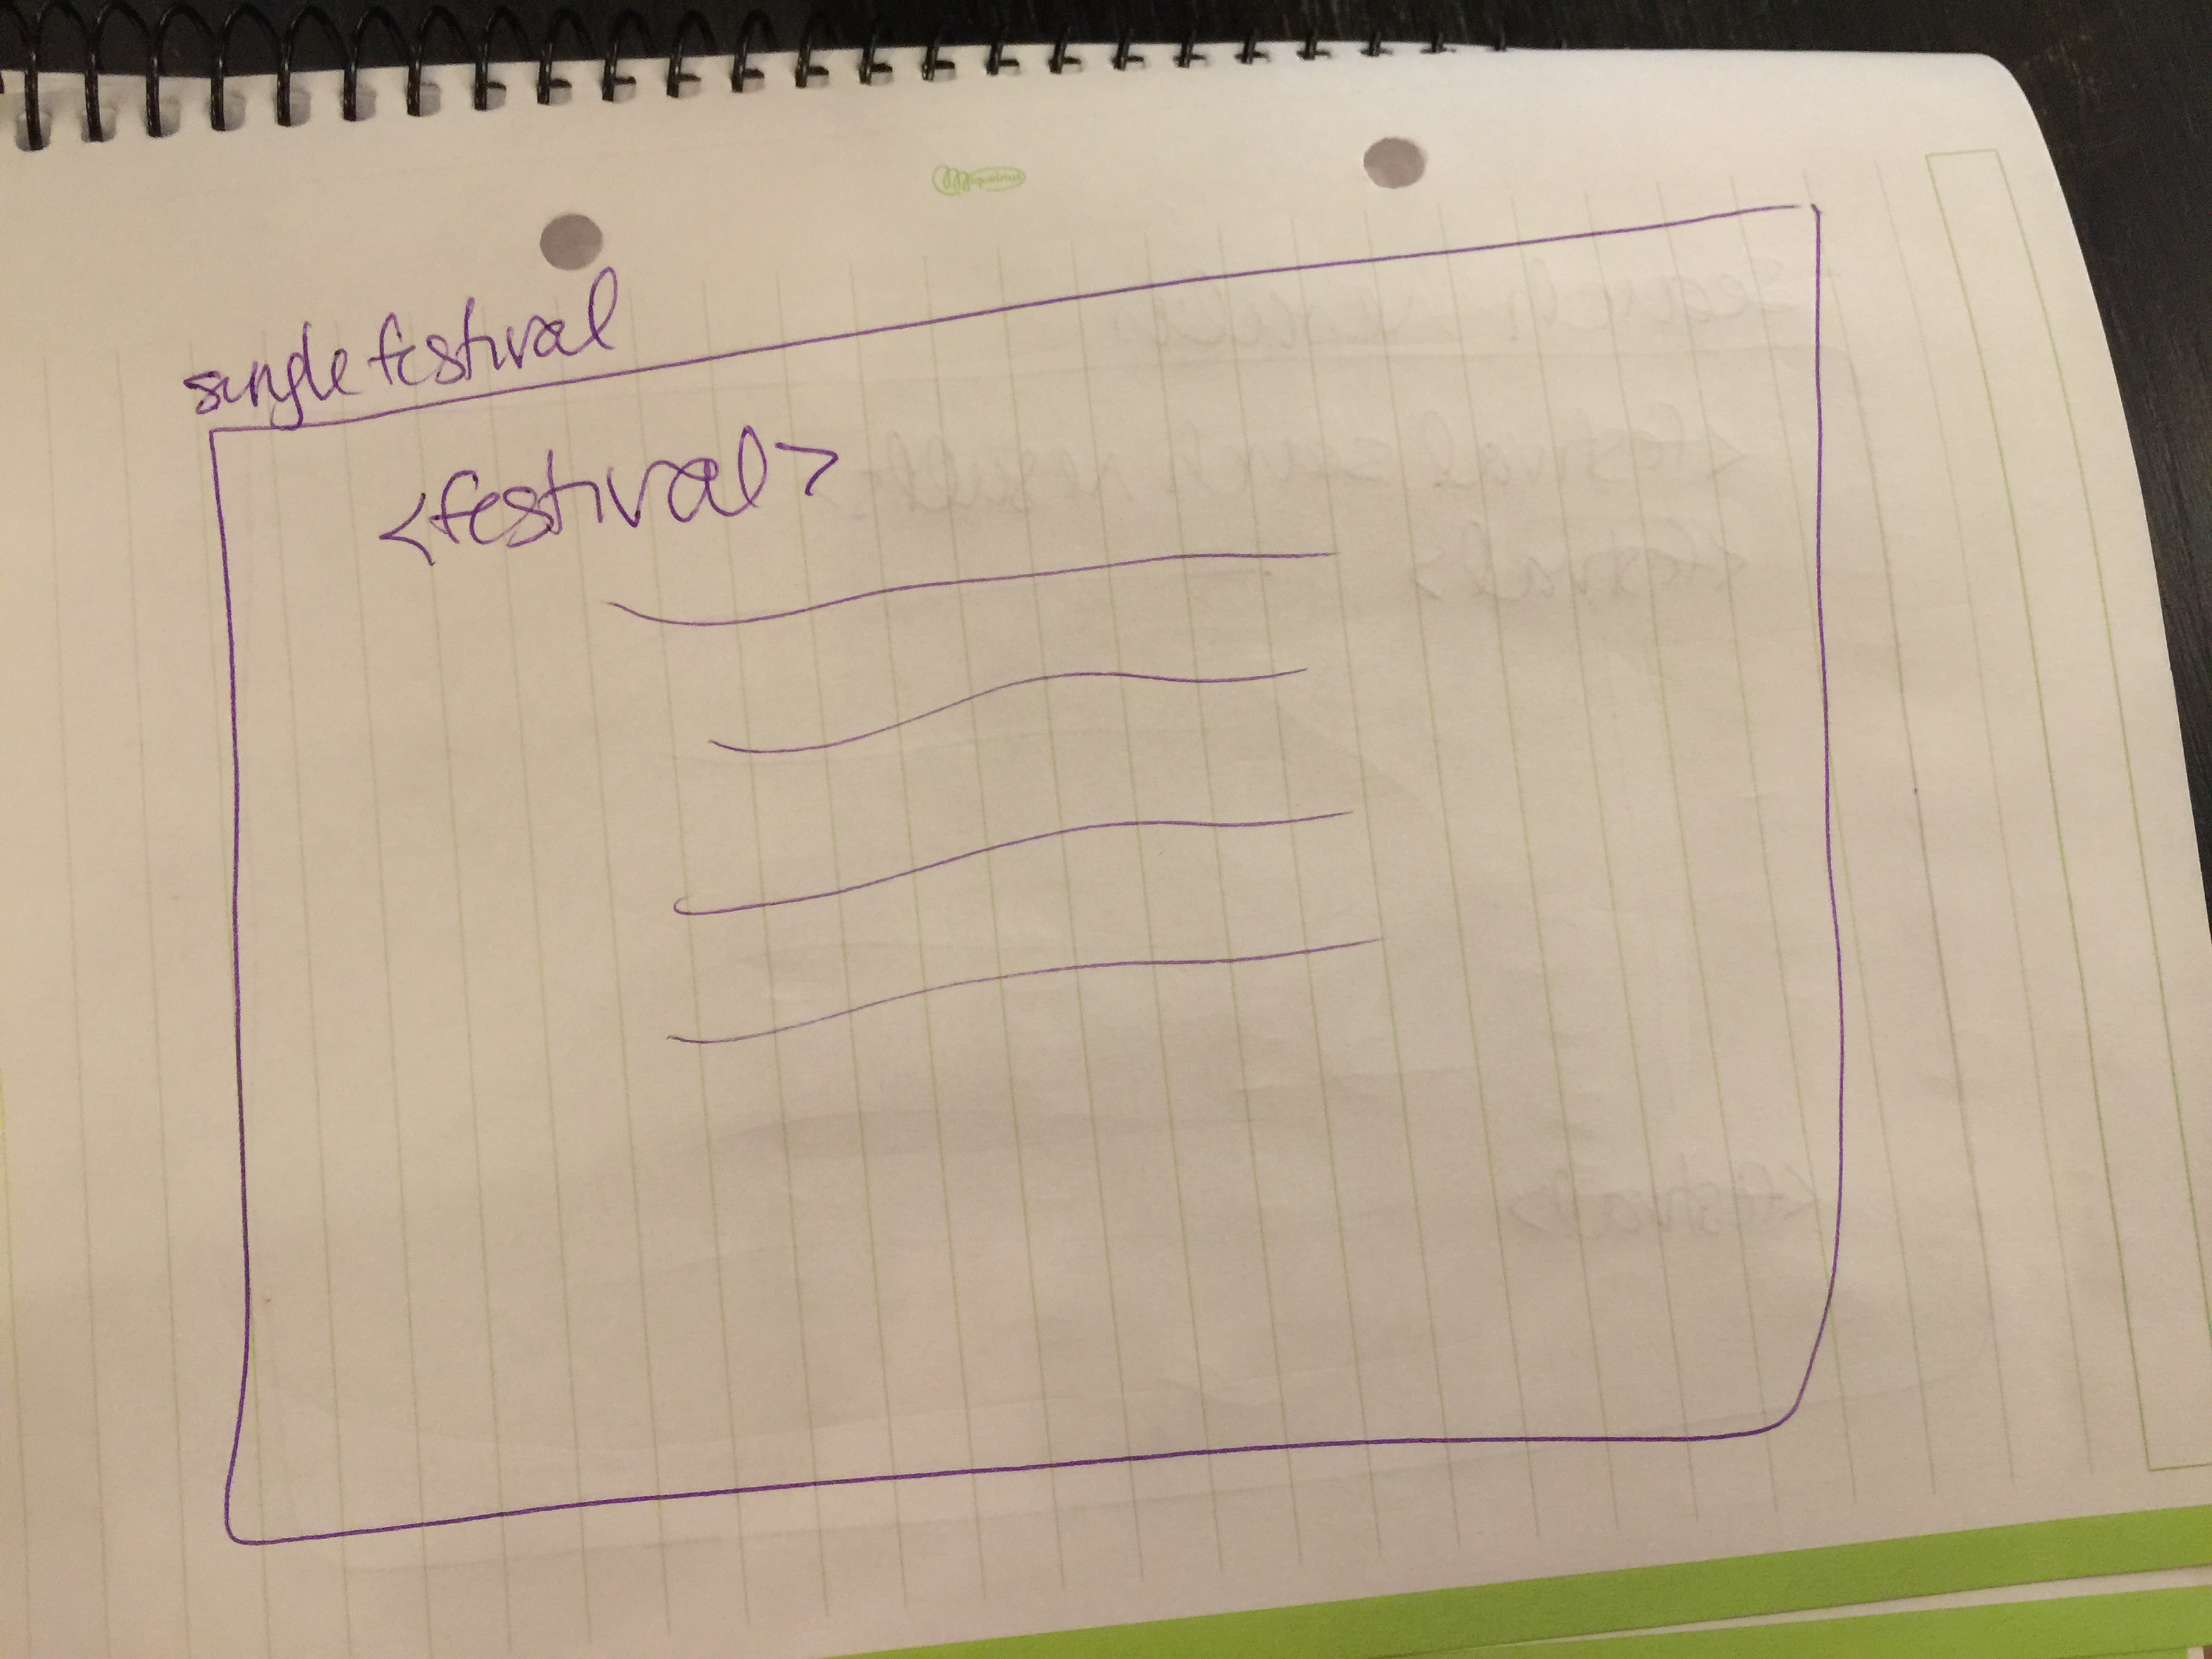 single festival
<festival>